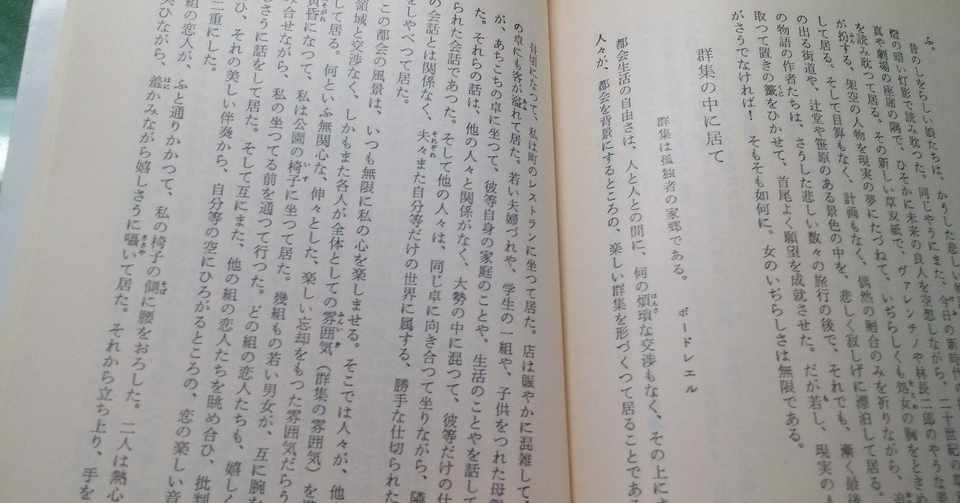 ふ。
昔のしをらしい娘たちは、かうした悲しい
燈の暗い灯影で読み耽つた。同じやうにまた、今日の新時代の
真や劇場の座席の隅で、ひそかに未来の良人を空想しながら、二十世紀の
を読み耽つて居る。その新しい草双紙で、ヴァレンチノや林長二郎のやうな
が扮する、架空の人物を現実の夢にたづねて、いぢらしくも処女の胸をときめ
して居る。そして目算もなく、計画もなく、偶然の廻合のみを祈りながら、
の出る街道や、辻堂や笹原のある景色の中を、悲しく寂しげに漂泊して居る。
の物語の作者たちは、さうした悲しい数々の旅行の後で、それでも、漸く最
取つて置きの籤をひかせて、首尾よく願望を成就させた。だが若し、現実の人
がさうでなければ! そもそも如何に。女のいぢらしさは無限である。
群集の中に居て
群集は孤独者の家郷である。 ボードレエル
都会生活の自由さは、人と人との間に、何の煩瑣な交渉もなく、その上に
人々が、都会を背景にするところの、楽しい群集を形づくつて居ることであ
になつて、私は町のレストラントに坐つて居た。店は賑やかに混雑して、
の卓にも客が溢れて居た。若い夫婦づれや、学生の一組や、子供をつれた母
が、あちこちの卓に坐つて、彼等自身の家庭のことや、生活のことやを話して
た。それらの話は、他の人々と関係がなく、大勢の中に混つて、彼等だけの仕
られた会話であつた。そして他の人々は、同じ卓に向き合つて坐りながら、隣
の会話とは関係なく、夫々また自分等だけの世界に属する、勝手な仕切られた
をしやべつて居た。
この都会の風景は、いつも無限に私の心を楽しませる。そこでは人々が、他
領域と交渉なく、しかもまた各人が全体としての雰囲気(群集の雰囲気)を
して居る。何といふ無関心な、伸々とした、楽しい忘却をもつた雰囲気だらう
黄昏になつて、私は公園の椅子に坐つて居た。幾組もの若い男女が、互に腕を
み合せながら、私の坐つてる前を通つて行つた。どの組の恋人たちも、嬉しく
さうに話をして居た。そして互にまた、他の組の恋人たちを眺め合ひ、批判
ひ、それの美しい伴奏から、自分等の空にひろがるところの、恋の楽しい音
二重にした。
組の恋人が、ふと通りかかつて、私の椅子の側に腰をおろした。二人は熱心
笑ひながら、羞かみながら嬉しさうに囁いて居た。それから立ち上り、手を